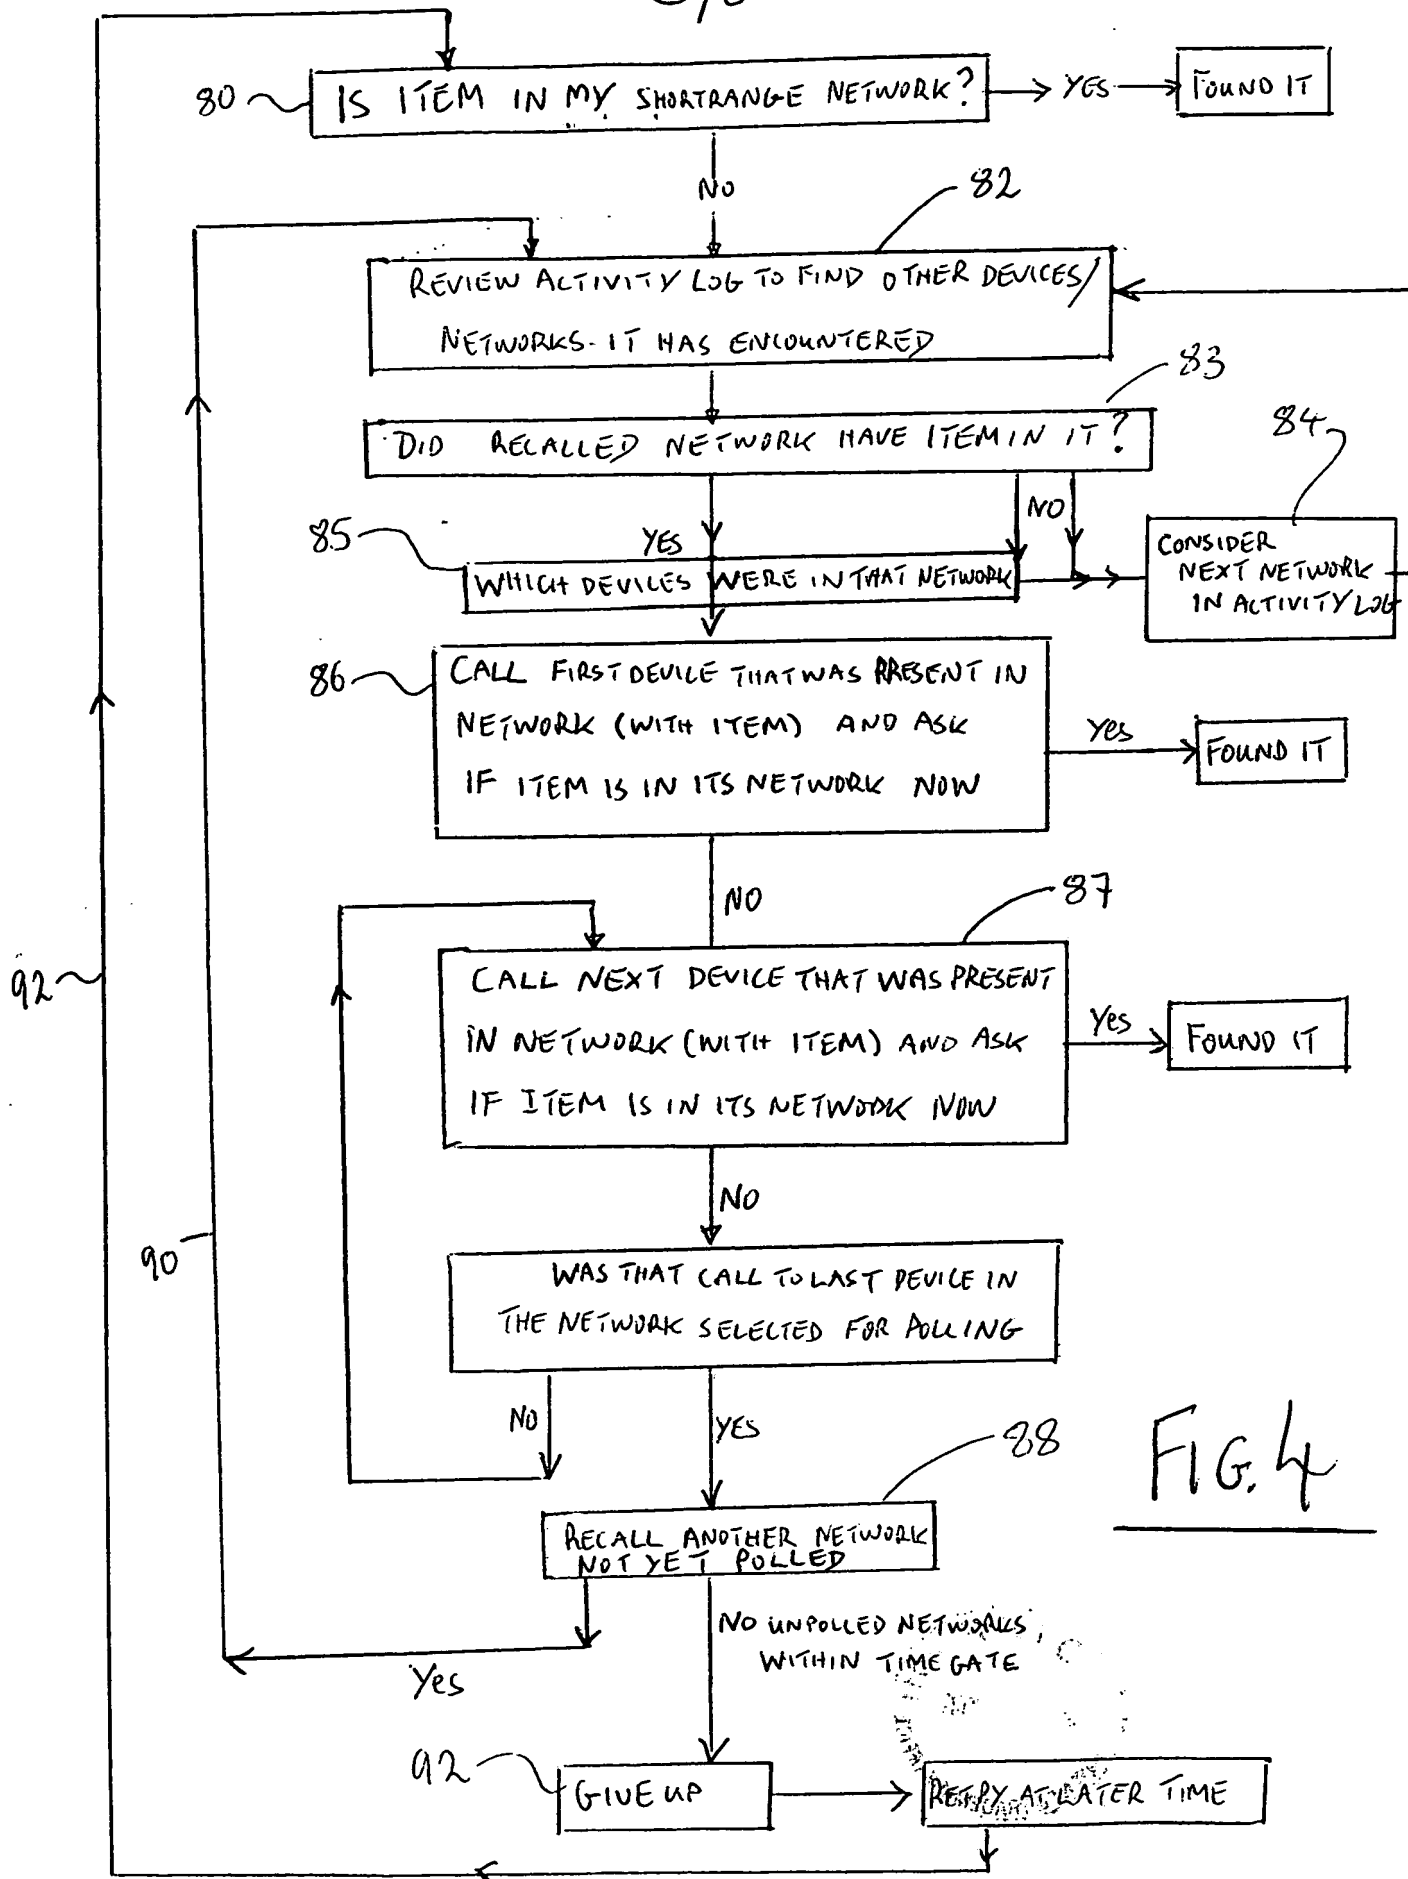 80
IS ITEM IN MY SHORTRANGE NETWORK?
YES
FOUND IT
NO
82
REVIEW ACTIVITY LOG TO FIND OTHER DEVICES/
NETWORKS. IT HAS ENCOUNTERED
83
DID RECALLED NETWORK HAVE ITEM IN IT?
84
NO
YES
85
WHICH DEVICES WERE IN THAT NETWORK
CONSIDER
NEXT NETWORK
IN ACTIVITY LOG
86
CALL FIRST DEVICE THAT WAS PRESENT IN
NETWORK (WITH ITEM) AND ASK
IF ITEM IS IN ITS NETWORK NOW
Yes
FOUND IT
NO
87
92
CALL NEXT DEVICE THAT WAS PRESENT
IN NETWORK (WITH ITEM) AND ASK
IF ITEM IS IN ITS NETWORK NOW
Yes
FOUND IT
NO
90
WAS THAT CALL TO LAST DEVICE IN
THE NETWORK SELECTED FOR POLLING
NO
YES
88
FIG. 4
RECALL ANOTHER NETWORK
NOT YET POLLED
NO UNPOLLED NETWORKS,
WITHIN TIME GATE
Yes
92
GIVE UP
RETRY AT LATER TIME